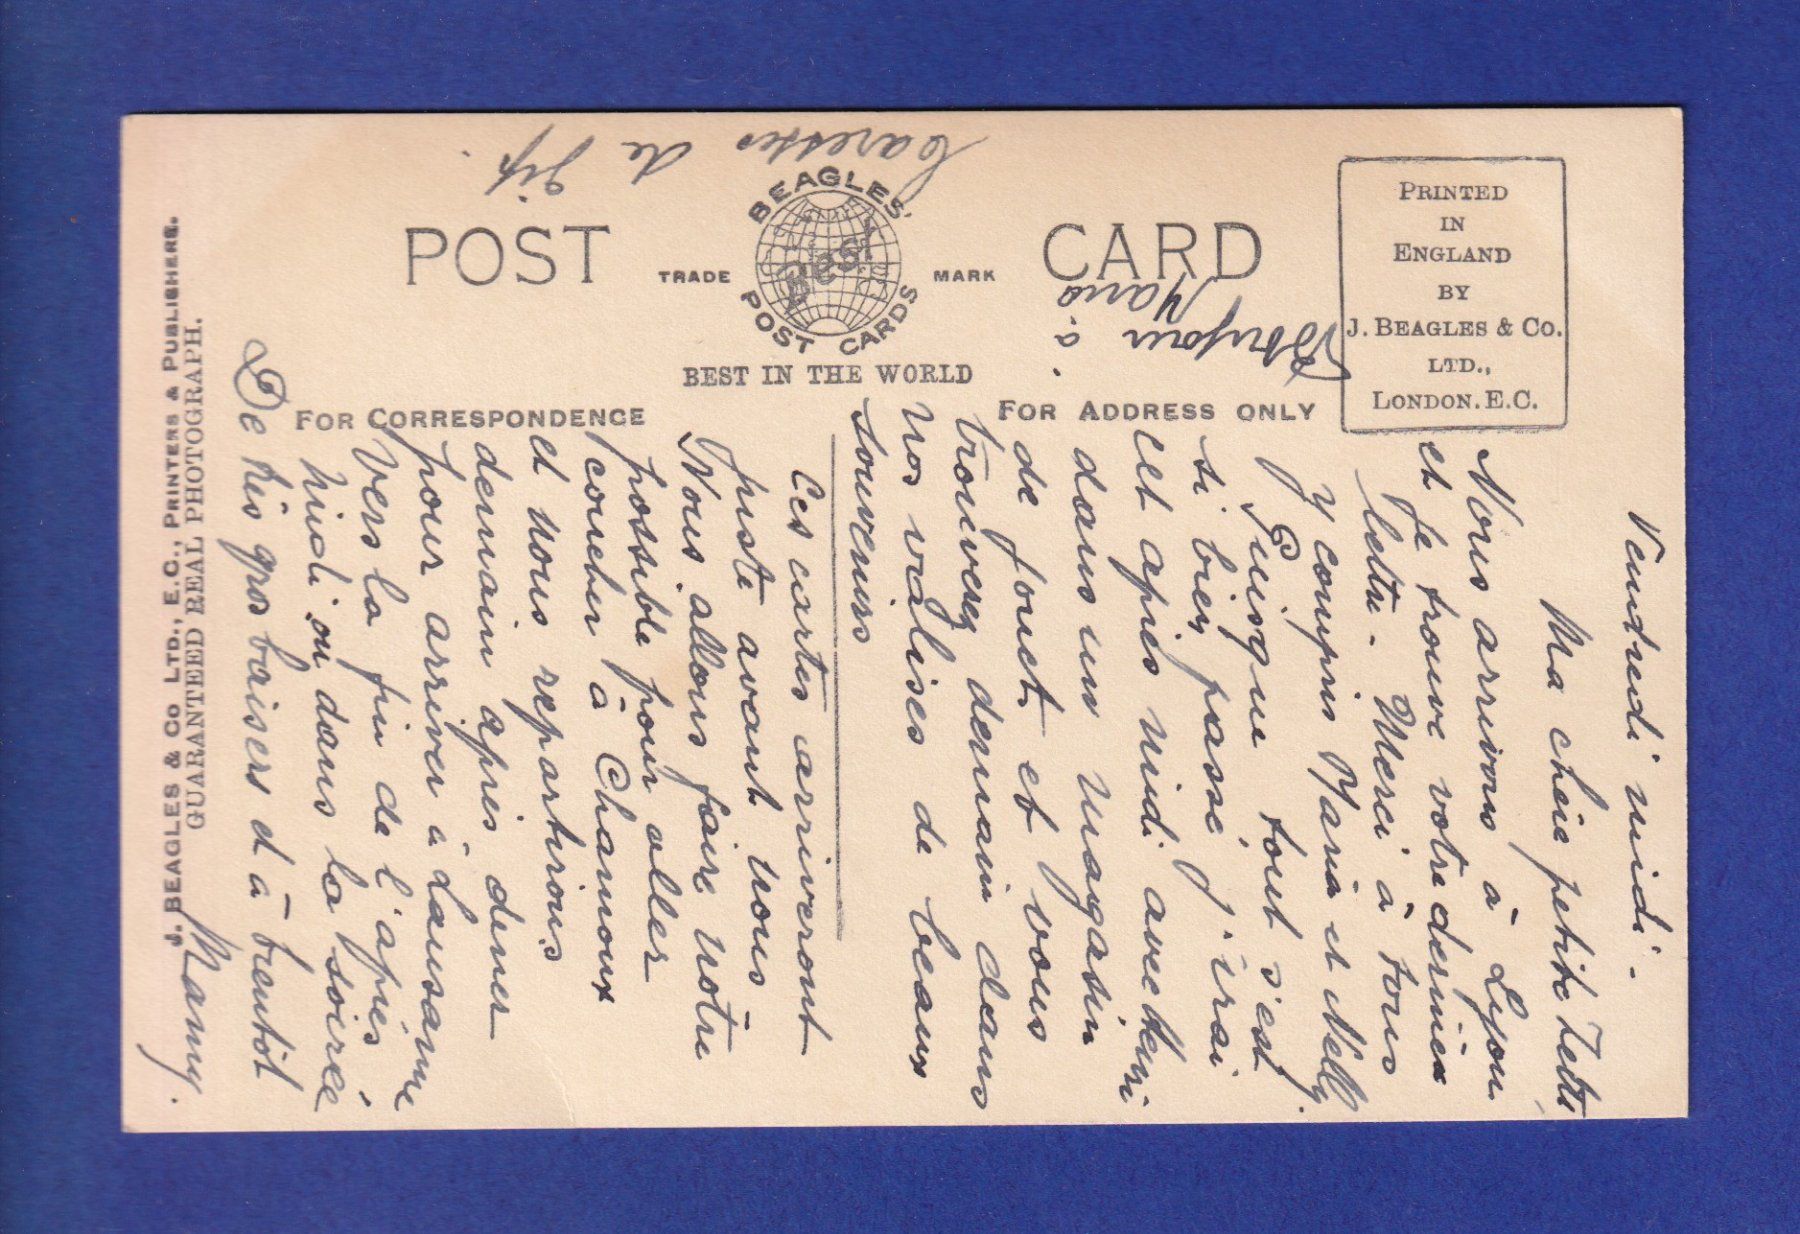 POST CARD
BEAGLES'
Best
POST CARDS
TRADE MARK
BEST IN THE WORLD
FOR CORRESPONDENCE
FOR ADDRESS ONLY
PRINTED
IN
ENGLAND
BY
J. BEAGLES & CO.
LTD.,
LONDON. E.C.
J. BEAGLES & Co LTD., E.C., PRINTERS & PUBLISHERS.
GUARANTEED REAL PHOTOGRAPH.
Vendredi midi -
Ma chère petite
Nous arrivons à Lyon
et Je trouve votre dernière
lettre - Merci à tous
Y compris Maria et Nelly.
Puisque tout s'est
si bien passé j'irai
cet après midi avec
dans un magasin
de jouets et vous
trouverez demain dans
nos valises de beaux
souvenirs
Ces cartes arriveront
juste avant nous
Nous allons faire notre
possible pour aller
coucher à Chamonix
et nous repartirons
demain après diner
pour arriver à Lausanne
vers la fin de l'après
midi ou dans la soirée
De très gros baisers et à bientôt
Mamy.
Bonjour
à Maria.
Caresses de Gip.